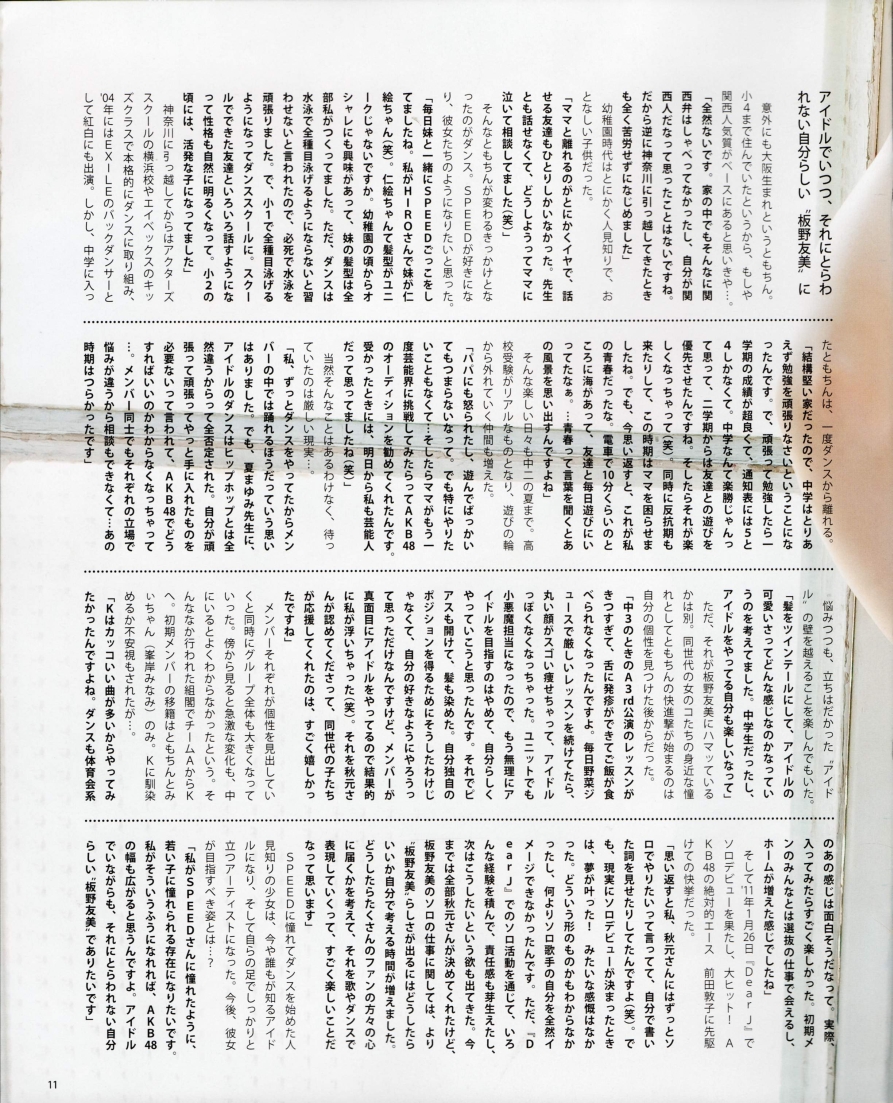 アイドルでいつつ、それにとらわ
れない自分らしい〝板野友美〟に
意外にも大阪生まれというともちん。
小4まで住んでいたというから、もしや
関西人気質がベースにあると思いきや…。
「全然ないです。家の中でもそんなに関
西弁はしゃべってなかったし、自分が関
西人だなって思ったことはないですね。
だから逆に神奈川に引っ越してきたとき
も全く苦労せずになじめました」
幼稚園時代はとにかく人見知りで、お
となしい子供だった。
「ママと離れるのがとにかくイヤで、話
せる友達もひとりしかいなかった。先生
とも話せなくて、どうしようってママに
泣いて相談してました(笑)」
そんなともちんが変わるきっかけとな
ったのがダンス。SPEEDが好きにな
り、彼女たちのようになりたいと思った。
「毎日妹と一緒にSPEEDごっこをし
てましたね。私がHIROさんで妹が仁
絵ちゃん(笑)。仁絵ちゃんて髪型がユニ
ークじゃないですか。幼稚園の頃からオ
シャレにも興味があって、妹の髪型は全
部私がつくってました。ただ、ダンスは
水泳で全種目泳げるようにならないと習
わせないと言われたので、必死で水泳を
頑張りました。で、小1で全種目泳げる
ようになってダンススクールに。スクー
ルでできた友達といろいろ話すようにな
って性格も自然に明るくなって。小2の
頃には、活発な子になってました」
神奈川に引っ越してからはアクターズ
スクールの横浜校やエイベックスのキッ
ズクラスで本格的にダンスに取り組み、
'04年にはEXILEのバックダンサーと
して紅白にも出演。しかし、中学に入っ
たともちんは、一度ダンスから離れる。
「結構堅い家だったので、中学はとりあ
えず勉強を頑張りなさいということにな
ったんです。で、頑張って勉強したら一
学期の成績が超良くて、通知表には5と
4しかなくて。中学なんて楽勝じゃんっ
て思って、二学期からは友達との遊びを
優先させたんですね。そしたらそれが楽
しくなっちゃって(笑)。同時に反抗期も
来たりして、この時期はママを困らせま
したね。でも、今思い返すと、これが私
の青春だったな。電車で10分くらいのと
ころに海があって、友達と毎日遊びにい
ってたなぁ。…青春って言葉を聞くとあ
の風景を思い出すんですよね」
そんな楽しい日々も中二の夏まで。高
校受験がリアルなものとなり、遊びの輪
から外れていく仲間も増えた。
「パパにも怒られたし、遊んでばっかい
てもつまらないなって。でも特にやりた
いこともなくて…そしたらママがもう一
度芸能界に挑戦してみたらってAKB48
のオーディションを勧めてくれたんです。
受かったときには、明日から私も芸能人
だって思ってましたね(笑)」
当然そんなことはあるわけなく、待っ
ていたのは厳しい現実…。
「私、ずっとダンスをやってたからメン
バーの中では踊れるほうだっていう思い
はありました。でも、夏まゆみ先生に、
アイドルのダンスはヒップホップとは全
然違うからって全否定された。自分が頑
張って頑張ってやっと手に入れたものを
必要ないって言われて、AKB48でどう
すればいいのかわからなくなっちゃって
…。メンバー同士でもそれぞれの立場で
悩みが違うから相談もできなくて…あの
時期はつらかったです」
悩みつつも、立ちはだかった〝アイド
ル〟の壁を越えることを楽しんでもいた。
「髪をツインテールにして、アイドルの
可愛いさってどんな感じなのかなってい
うのを考えてました。中学生だったし、
アイドルをやってる自分も楽しいなって」
ただ、それが板野友美にハマッている
かは別。同世代の女のコたちの身近な憧
れとしてともちんの快進撃が始まるのは
自分の個性を見つけた後からだった。
「中3のときのA3rd公演のレッスンが
きつすぎて、舌に発疹ができてご飯が食
べられなくなったんですよ。毎日野菜ジ
ュースで厳しいレッスンを続けてたら、
丸い顔がスゴい痩せちゃって、アイドル
っぽくなくなっちゃった。ユニットでも
小悪魔担当になったので、もう無理にア
イドルを目指すのはやめて、自分らしく
やっていこうと思ったんです。それでピ
アスも開けて、髪も染めた。自分独自の
ポジションを得るためにそうしたわけじ
ゃなくて、自分の好きなようにやろうっ
て思っただけなんですけど、メンバーが
真面目にアイドルをやってるので結果的
に私が浮いちゃった(笑)。それを秋元さ
んが認めてくださって、同世代の子たち
が応援してくれたのは、すごく嬉しかっ
たですね」
メンバーそれぞれが個性を見出してい
くと同時にグループ全体も大きくなって
いった。傍から見ると急激な変化も、中
にいるとよくわからなかったという。そ
んななか行われた組閣でチームAからK
へ。初期メンバーの移籍はともちんとみ
ぃちゃん(峯岸みなみ)のみ。Kに馴染
めるか不安視もされたが…。
「Kはカッコいい曲が多いからやってみ
たかったんですよね。ダンスも体育会系
のあの感じは面白そうだなって。実際、
入ってみたらすごく楽しかった。初期メ
ンのみんなとは選抜の仕事で会えるし、
ホームが増えた感じでしたね」
そして'11年1月26日『DearJ』で
ソロデビューを果たし、大ヒット! A
KB48の絶対的エース 前田敦子に先駆
けての快挙だった。
「思い返すと私、秋元さんにはずっとソ
ロでやりたいって言ってて、自分で書い
た詞を見せたりしてたんですよ(笑)。で
も、現実にソロデビューが決まったとき
は、夢が叶った! みたいな感慨はなか
った。どういう形のものかもわからなか
ったし、何よりソロ歌手の自分を全然イ
メージできなかったんです。ただ、『D
earJ』でのソロ活動を通じて、いろ
んな経験を積んで、責任感も芽生えたし、
次はこうしたいという欲も出てきた。今
までは全部秋元さんが決めてくれたけど、
板野友美のソロの仕事に関しては、より
〝板野友美〟らしさが出るにはどうしたら
いいか自分で考える時間が増えました。
どうしたらたくさんのファンの方々の心
に届くかを考えて、それを歌やダンスで
表現していくって、すごく楽しいことだ
なって思います」
SPEEDに憧れてダンスを始めた人
見知りの少女は、今や誰もが知るアイド
ルになり、そして自らの足でしっかりと
立つアーティストになった。今後、彼女
が目指すべき姿とは…?
「私がSPEEDさんに憧れたように、
若い子に憧れられる存在になりたいです。
私がそういうふうになれれば、AKB48
の幅も広がると思うんですよ。アイドル
でいながらも、それにとらわれない自分
らしい〝板野友美〟でありたいです」
11